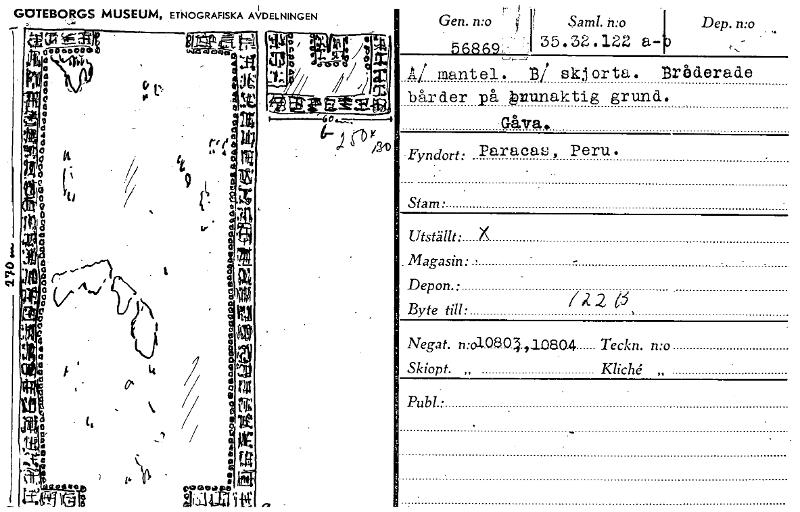 GÖTEBORGS MUSEUM, ETNOGRAFISKA AVDELNINGEN
270 cm
60
250 x 130
Gen. n:o Saml. n:o Dep. n:o
56869 35.32.122 a-b
A/ mantel. B/ skjorta. Bröderade
bårder på brunaktig grund.
Gåva.
Fyndort: Paracas, Peru.
Stam:
Utställt: X
Magasin:
Depon.:
Byte till: 122 B.
Negat. n:o 10803,,10804 Teckn. n:o
Skiopt. „ Kliché „
Publ.: